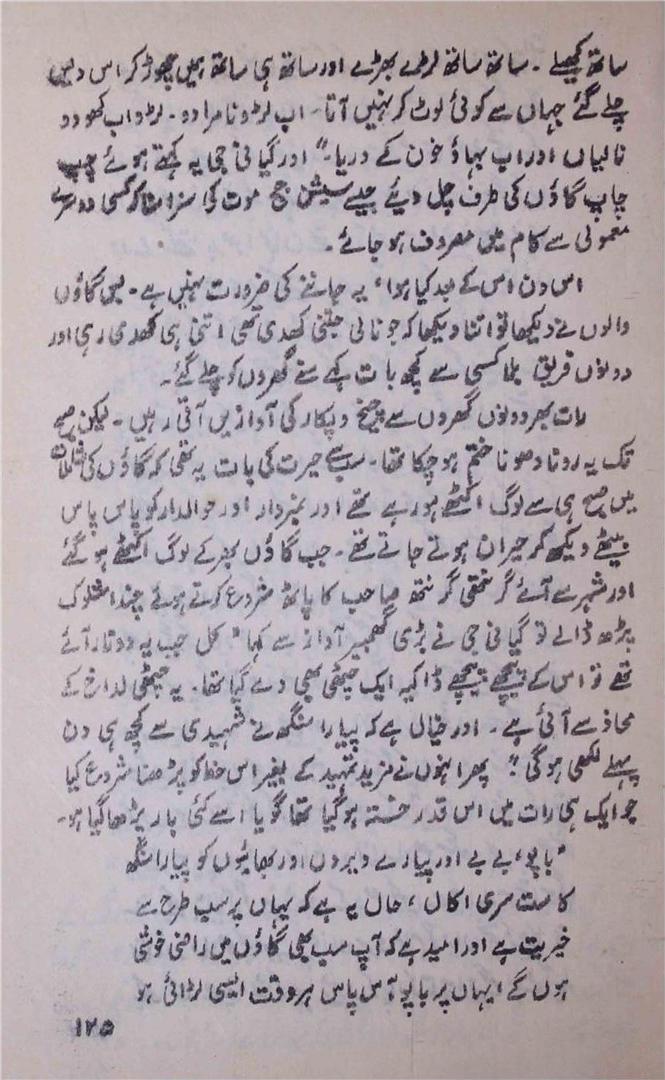 ساتھ کھیلے ۔ ساتھ ساتھ لڑے بھڑے اور ساتھ ہی ساتھ ہمیں چھوڑ کر اس دیس
چلے گئے جہاں سے کوئی لوٹ کر نہیں آتا۔ اب لڑو نامرادو۔ لڑو اب کھودو
نالیاں اور اب بہاؤ خون کے دریا۔" اور گیانی جی یہ کہتے ہوئے چپ
چاپ گاؤں کی طرف چل دیئے جیسے سیشن جج موت کی سزا سنا کر کسی دوسرے
معمولی سے کام میں مصروف ہو جائے ۔
اس دن اس کے بعد کیا ہوا، یہ جاننے کی ضرورت نہیں ہے ۔ بس گاؤں
والوں نے دیکھا تو اتنا دیکھا کہ جو نالی جتنی کھدی تھی اتنی ہی کھدی رہی اور
دونوں فریق بلا کسی سے کچھ بات کہے سنے گھروں کو چلے گئے ۔
رات بھر دونوں گھروں سے چیخ و پکار کی آوازیں آتی رہیں ۔ لیکن صبح
تک یہ رونا دھونا ختم ہو چکا تھا۔ سب سے حیرت کی بات یہ تھی کہ گاؤں کی
میں صبح ہی سے لوگ اکٹھے ہو رہے تھے اور نمبردار اور حوالدار کو پاس پاس
بیٹھے دیکھ کر حیران ہوتے جاتے تھے ۔ جب گاؤں بھر کے لوگ اکٹھے ہو گئے
اور شہر سے آئے گرنتھی گرنتھ صاحب کا پاٹھ شروع کرتے ہوئے چند اشلوک
پڑھ ڈالے تو گیانی جی نے بڑی گھمبیر آواز سے کہا "کل جب یہ دو تار آئے
تھے تو اس کے پیچھے پیچھے ڈاکیہ ایک چٹھی بھی دے گیا تھا۔ یہ چٹھی لداخ کے
محاذ سے آئی ہے ۔ اور خیال ہے کہ پیارا سنگھ نے شہیدی سے کچھ ہی دن
پہلے لکھی ہو گی"۔ پھر انہوں نے مزید تمہید کے بغیر اس خط کو پڑھنا شروع کیا
جو ایک ہی رات میں اس قدر خستہ ہو گیا تھا گویا اسے کئی بار پڑھا گیا ہو۔
"باپو، بے بے اور پیارے ویروں اور بھائیوں کو پیارا سنگھ
کا ست سری اکال ، حال یہ ہے کہ یہاں پر سب طرح سے
خیریت ہے اور امید ہے کہ آپ سب بھی گاؤں میں راضی خوشی
ہوں گے ایہاں پر باپو آس پاس ہر وقت ایسی لڑائی ہو
۱۲۵